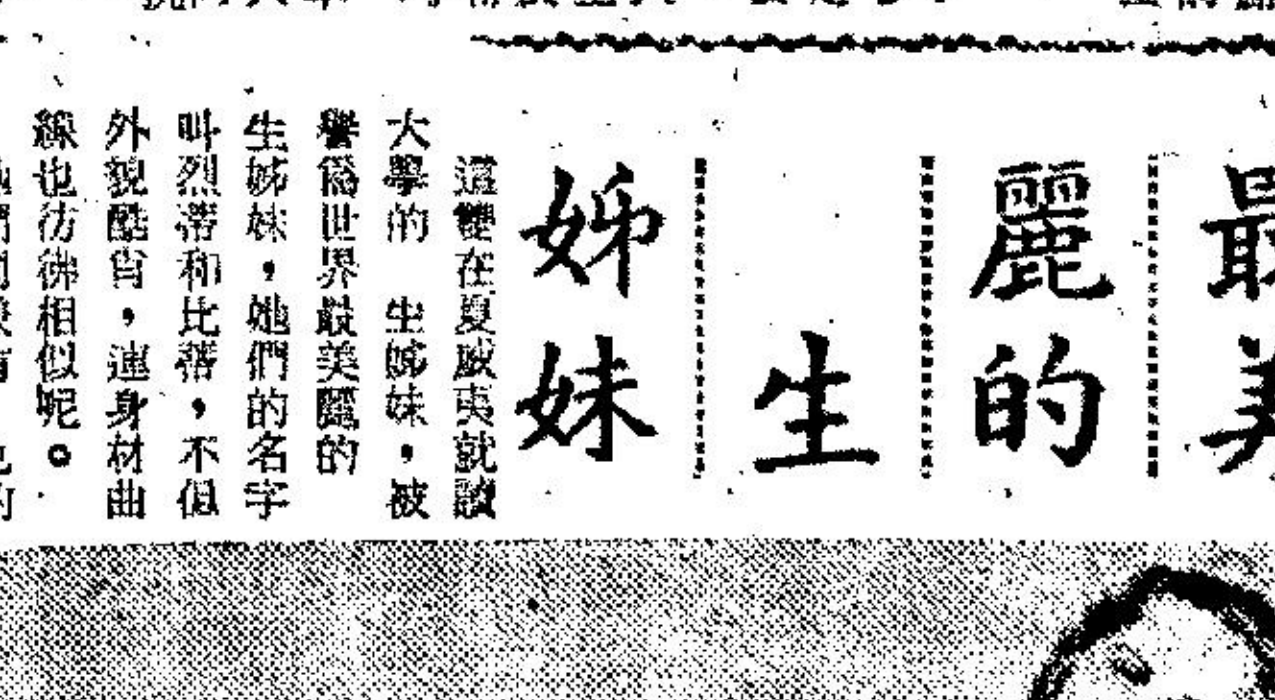 最美
麗的
生
姊妹
這雙在夏威夷就讀
大學的 生姊妹，被
譽爲世界最美麗的
生姊妹，她們的名字
叫烈蒂和比蒂，不但
外貌酷肖，連身材曲
線也彷彿相似呢。